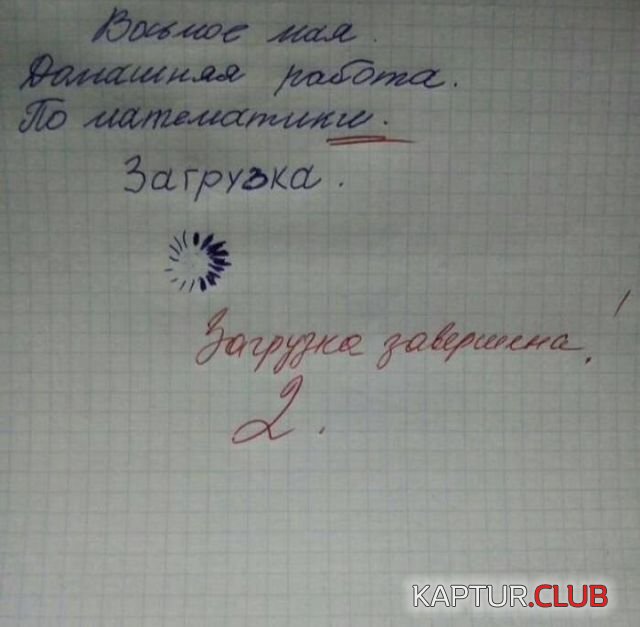 Восьмое мая.
Домашняя работа.
По математики.
Загрузка.
Загрузка завершена!
2.
KAPTUR.CLUB